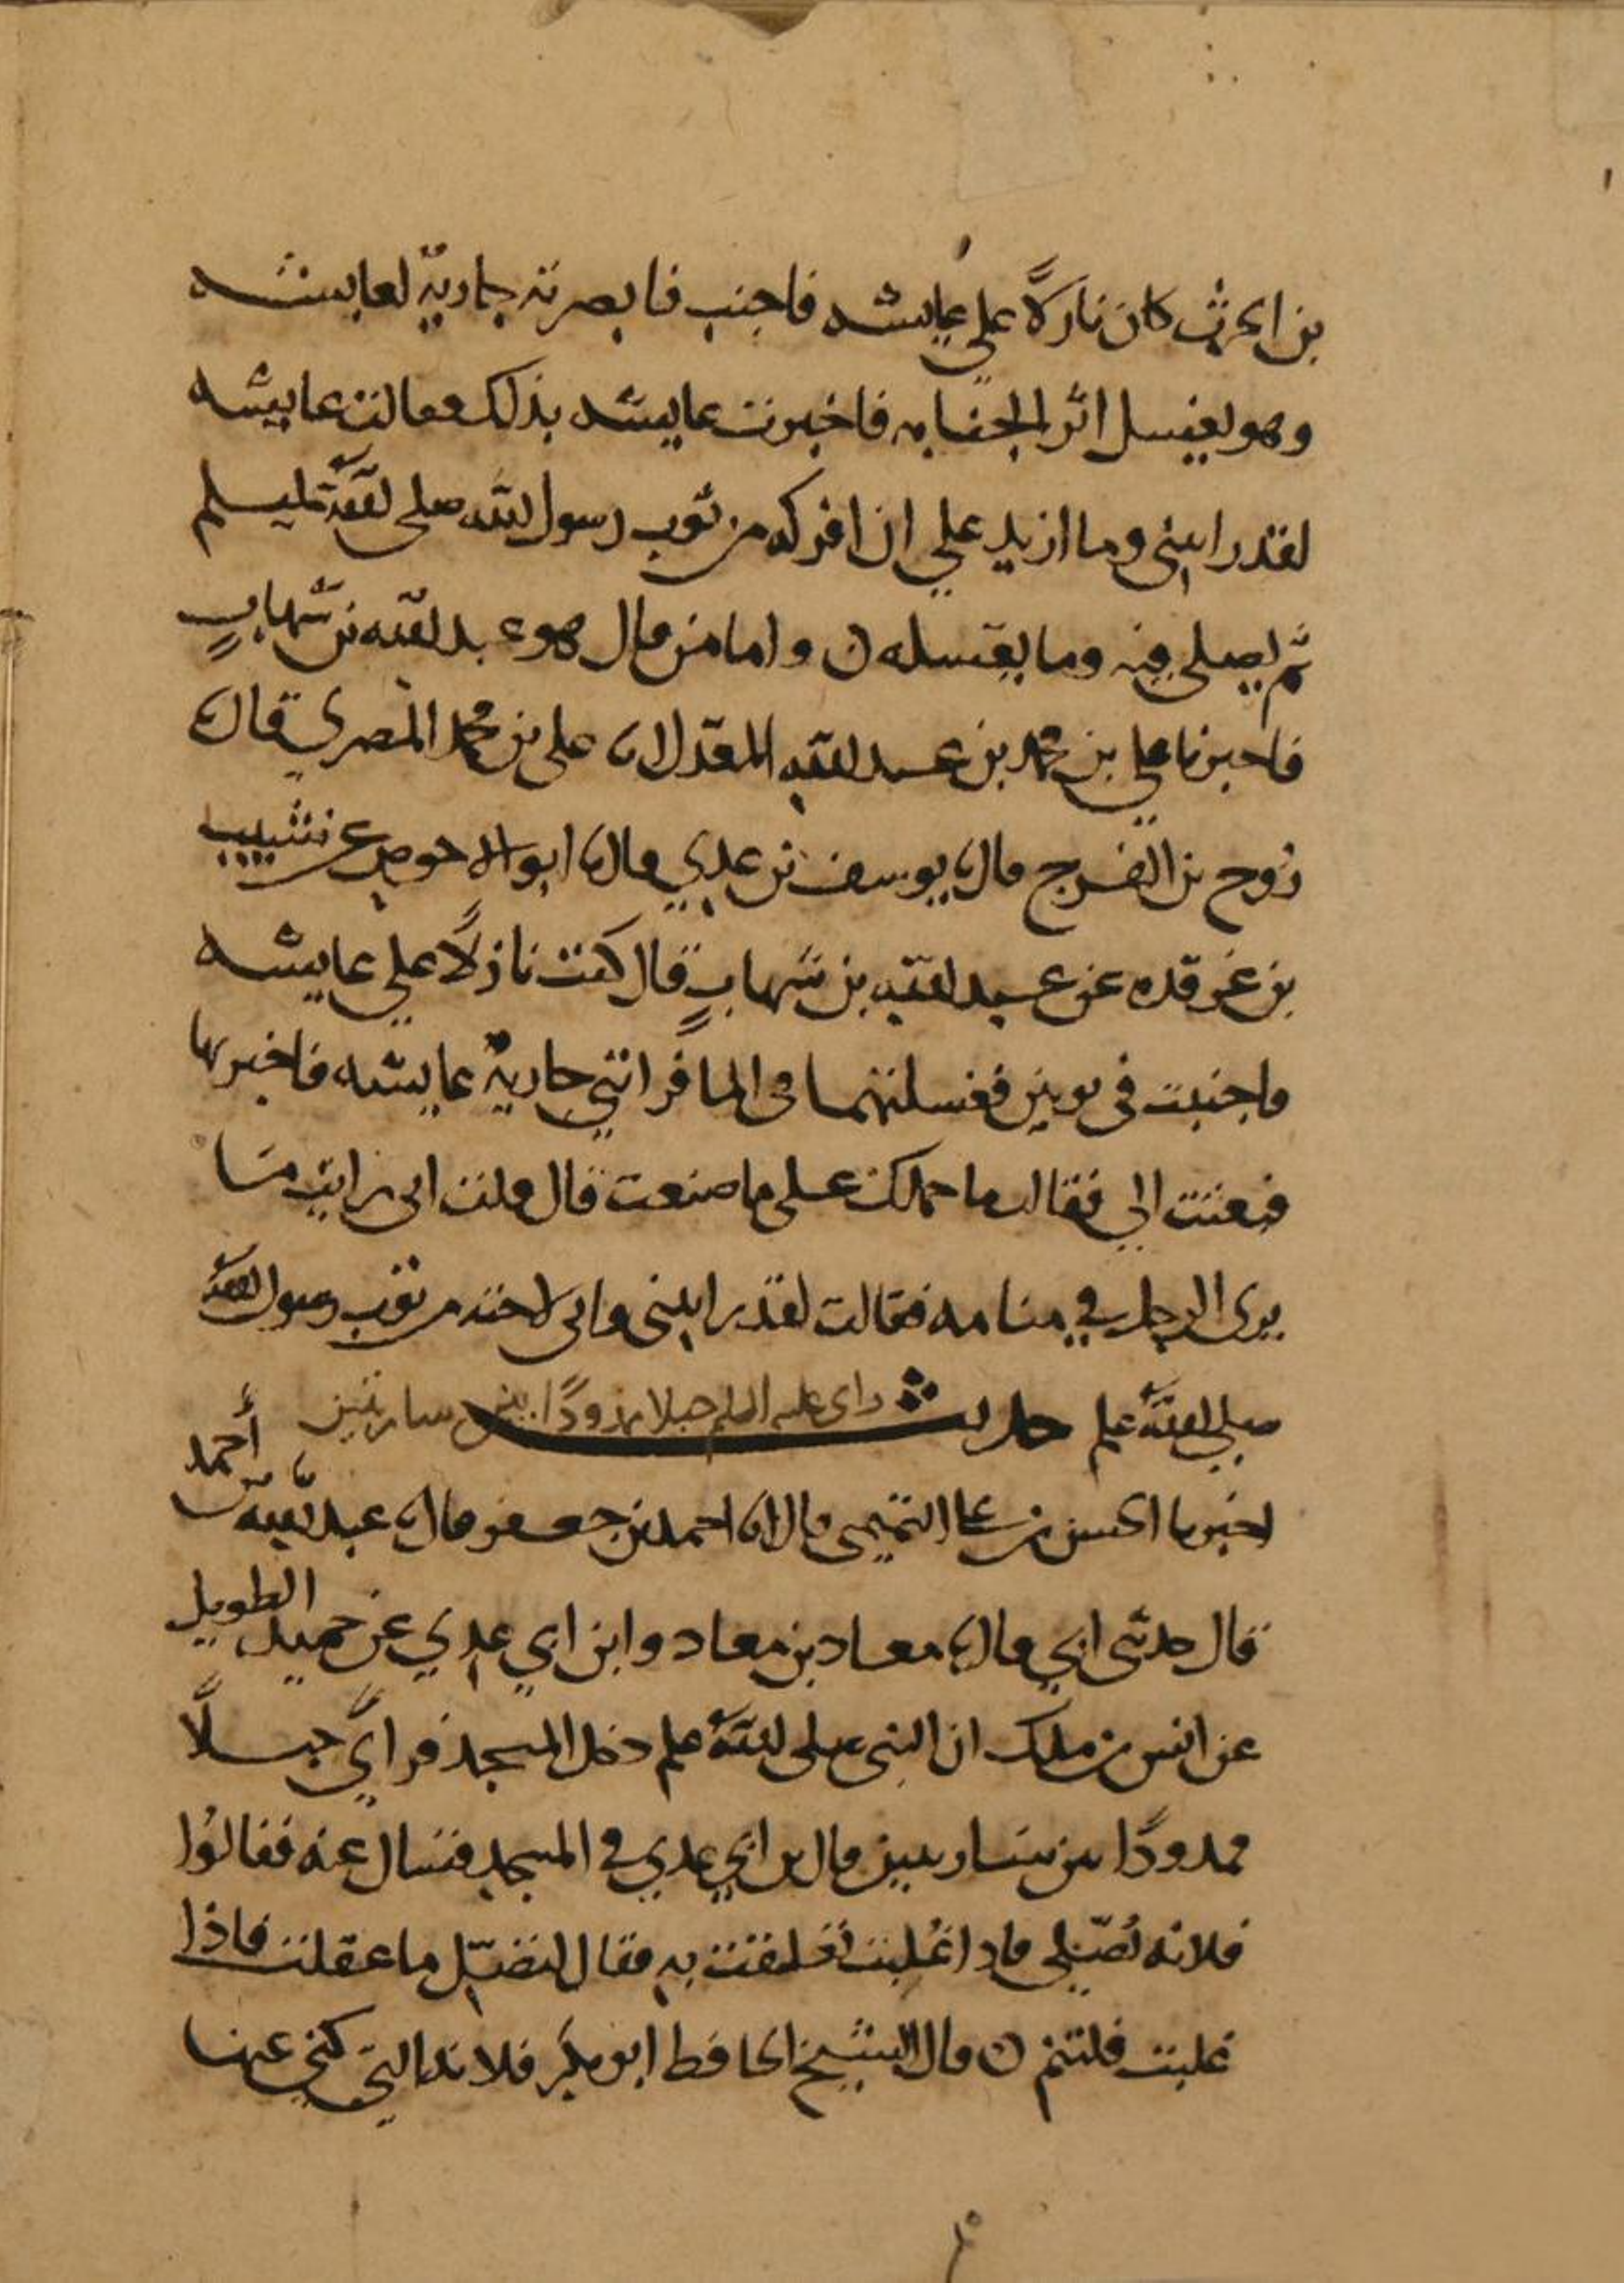 بن الحرث كان نازلًا على عايشه فاجنب فابصرته جاريةٌ لعايشه
وهو يغسل اثر الجنابه فاخبرت عايشه بذلك فقالت عايشه
لقد رايتني وما ازيد علي ان افركه من ثوب رسول الله صلى الله عليه وسلم
ثم يصلي فيه وما يغسله ن واما من قال هو عبد الله بن شهابٍ
فاخبرنا علي بن محمد بن عبد الله المعدل انا علي بن محمد المصري قال نا
روح بن الفرج قال نا يوسف بن عدي قال نا ابو الاحوص عن شبيب
بن غرقده عن عبد الله بن شهابٍ قال كنت نازلًا علي عايشه
فاجنبت في ثوبين فغسلتهما في الما فراتني جاريةٌ عايشه فاخبرتها
فبعثت الي فقالت ما حملك على ما صنعت قال قلت اني رايت ما
يرى الرجل في منامه فقالت لقد رايتني واني لاحته من ثوب رسول الله
صلى الله عليه حديث راى عليه السلم حبلا ممدودًا بين ساريتين
اخبرنا الحسن بن علي التميمي قال انا احمد بن جعفر قال نا عبد الله بن أحمد
قال حدثني ابي قال نا معاد بن معاد وابن ابي عدي عن حميد الطويل
عن انس بن ملك ان النبي صلى الله عليه دخل المسجد فراي حبلًا
ممدودًا بين ساريتين قال بن ابي عدي في المسجد فسال عنه فقالوا
فلانه تُصَلي فادا غُلبت تعلقت به فقال لتصَلّ ما عقلت فاذا
غلبت فلتنم ن قال الشيخ الحافط ابو بكر فلانه التي كني عنها